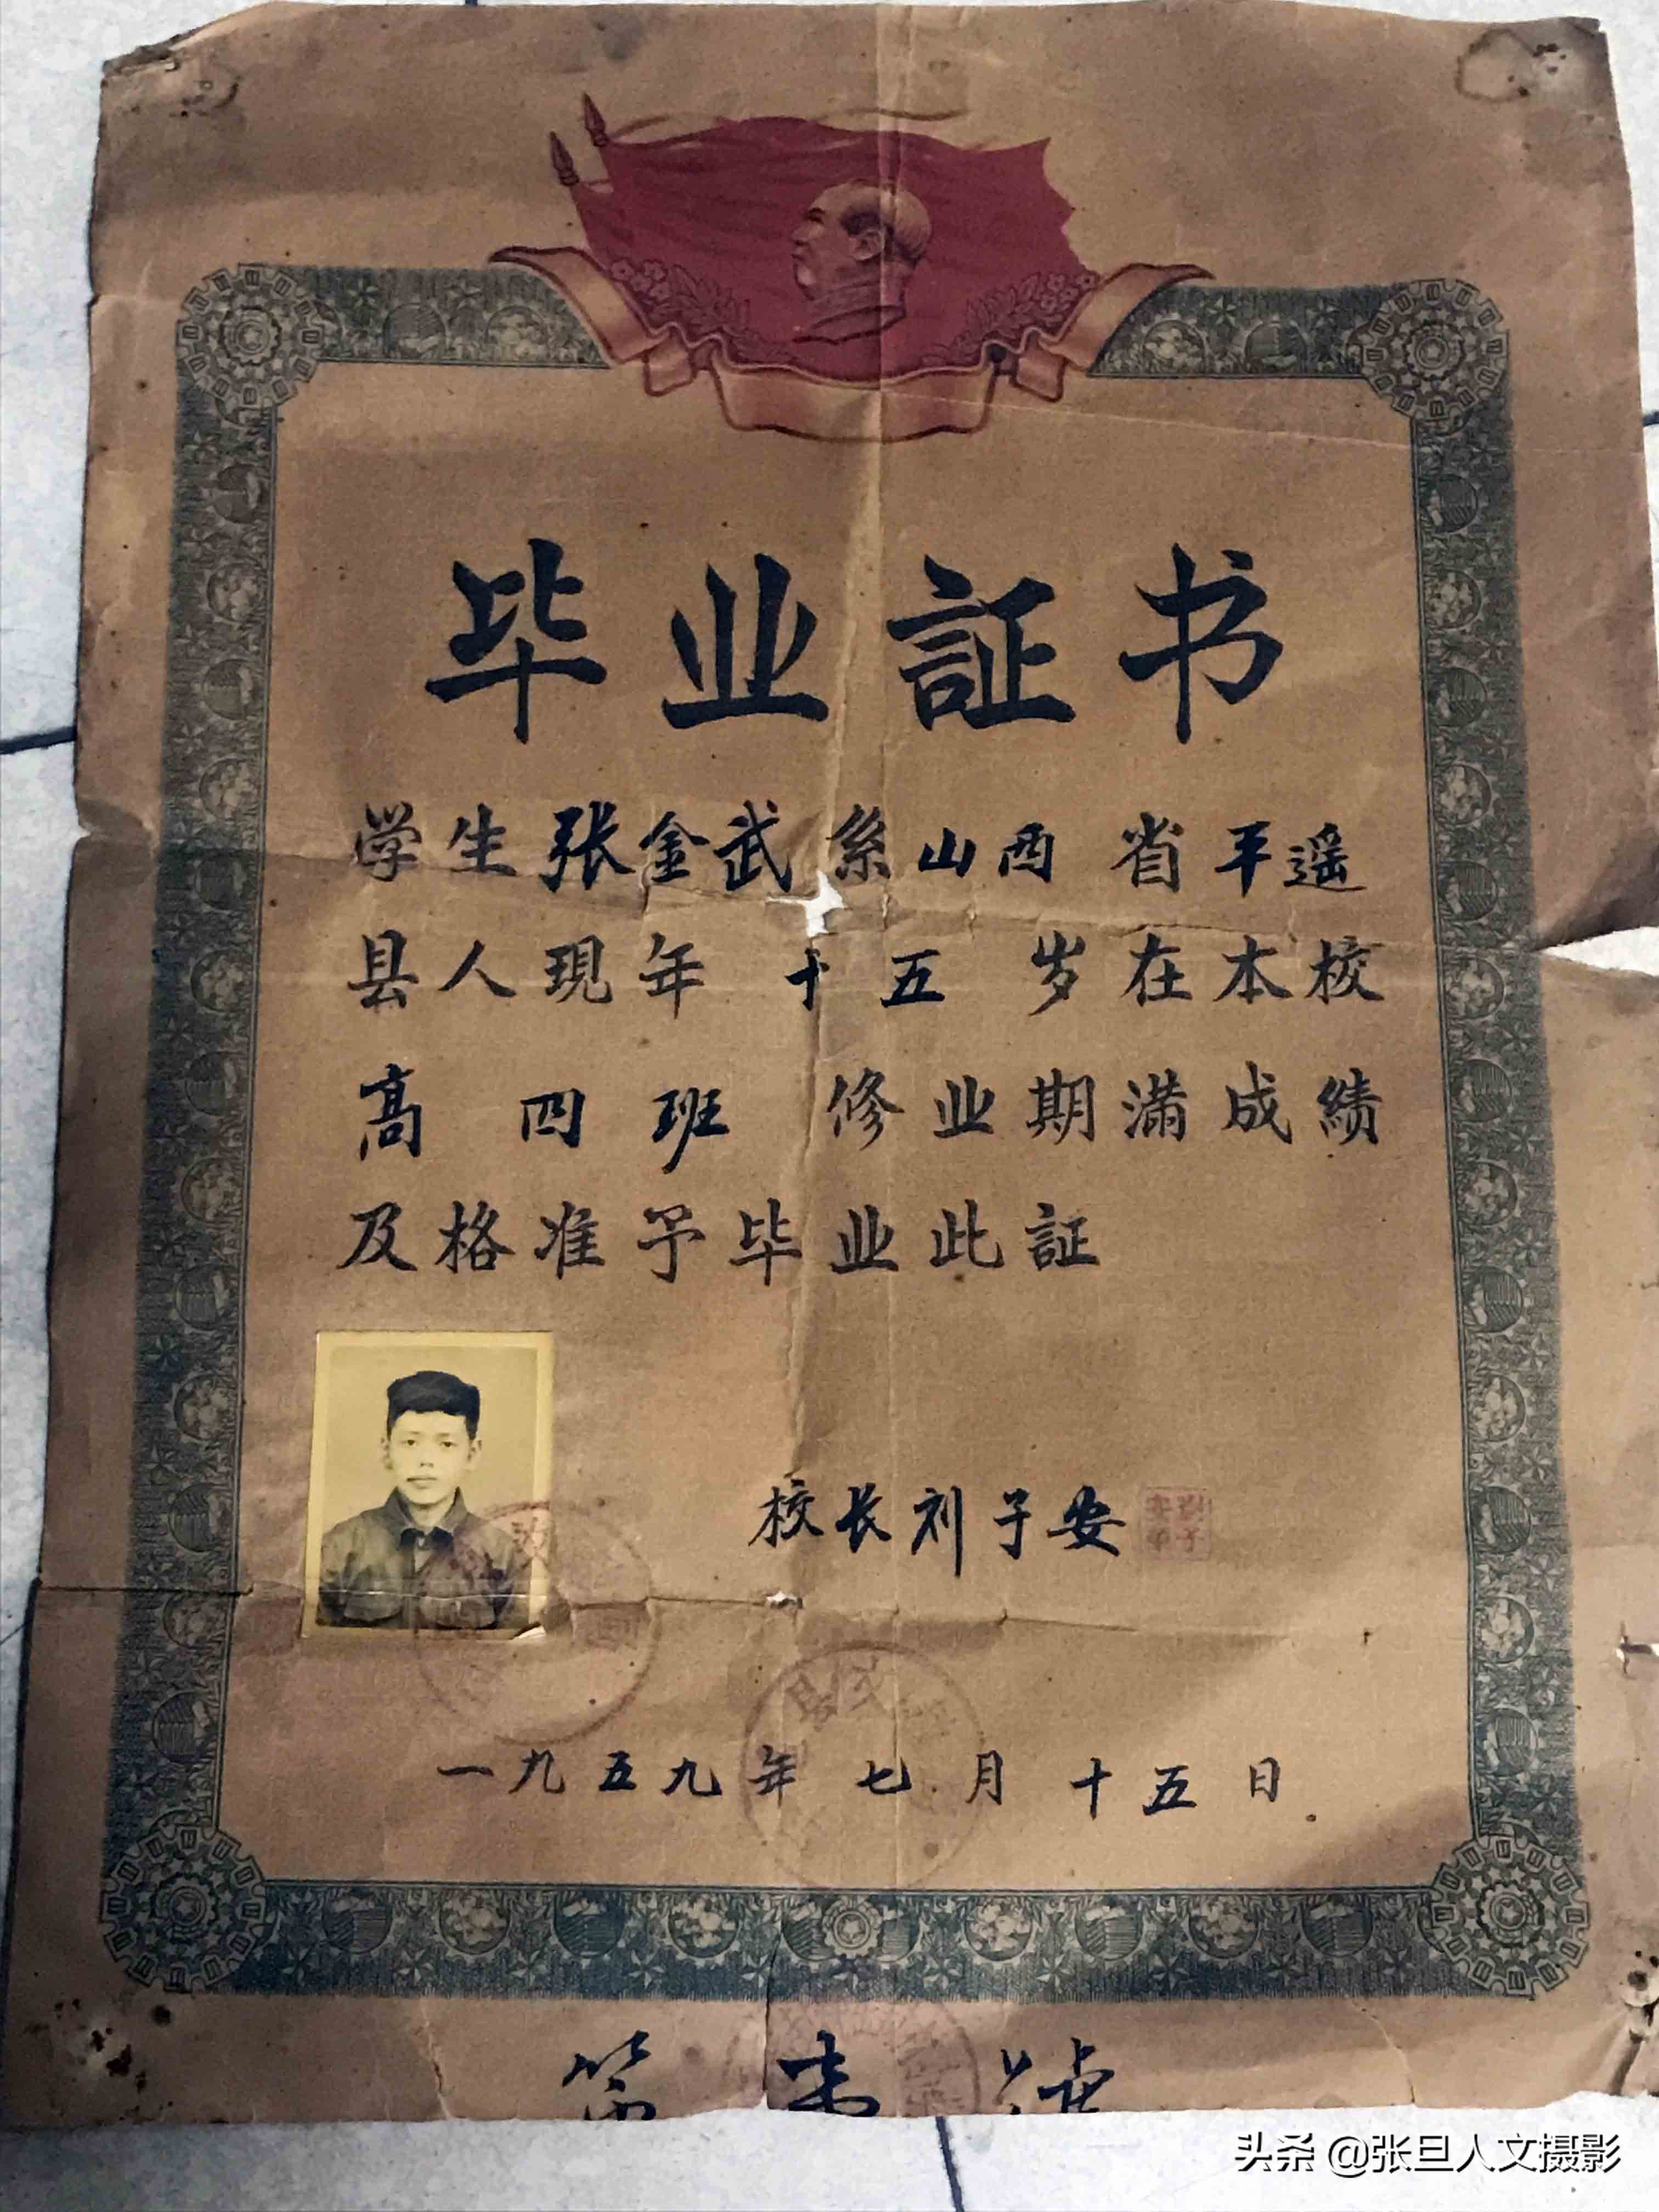 毕业証书
学生张金武系山西省平遥
县人現年十五岁在本校
高四班修业期满成績
及格准予毕业此証
校长刘子安
一九五九年七月十五日
头条 @张旦人文摄影